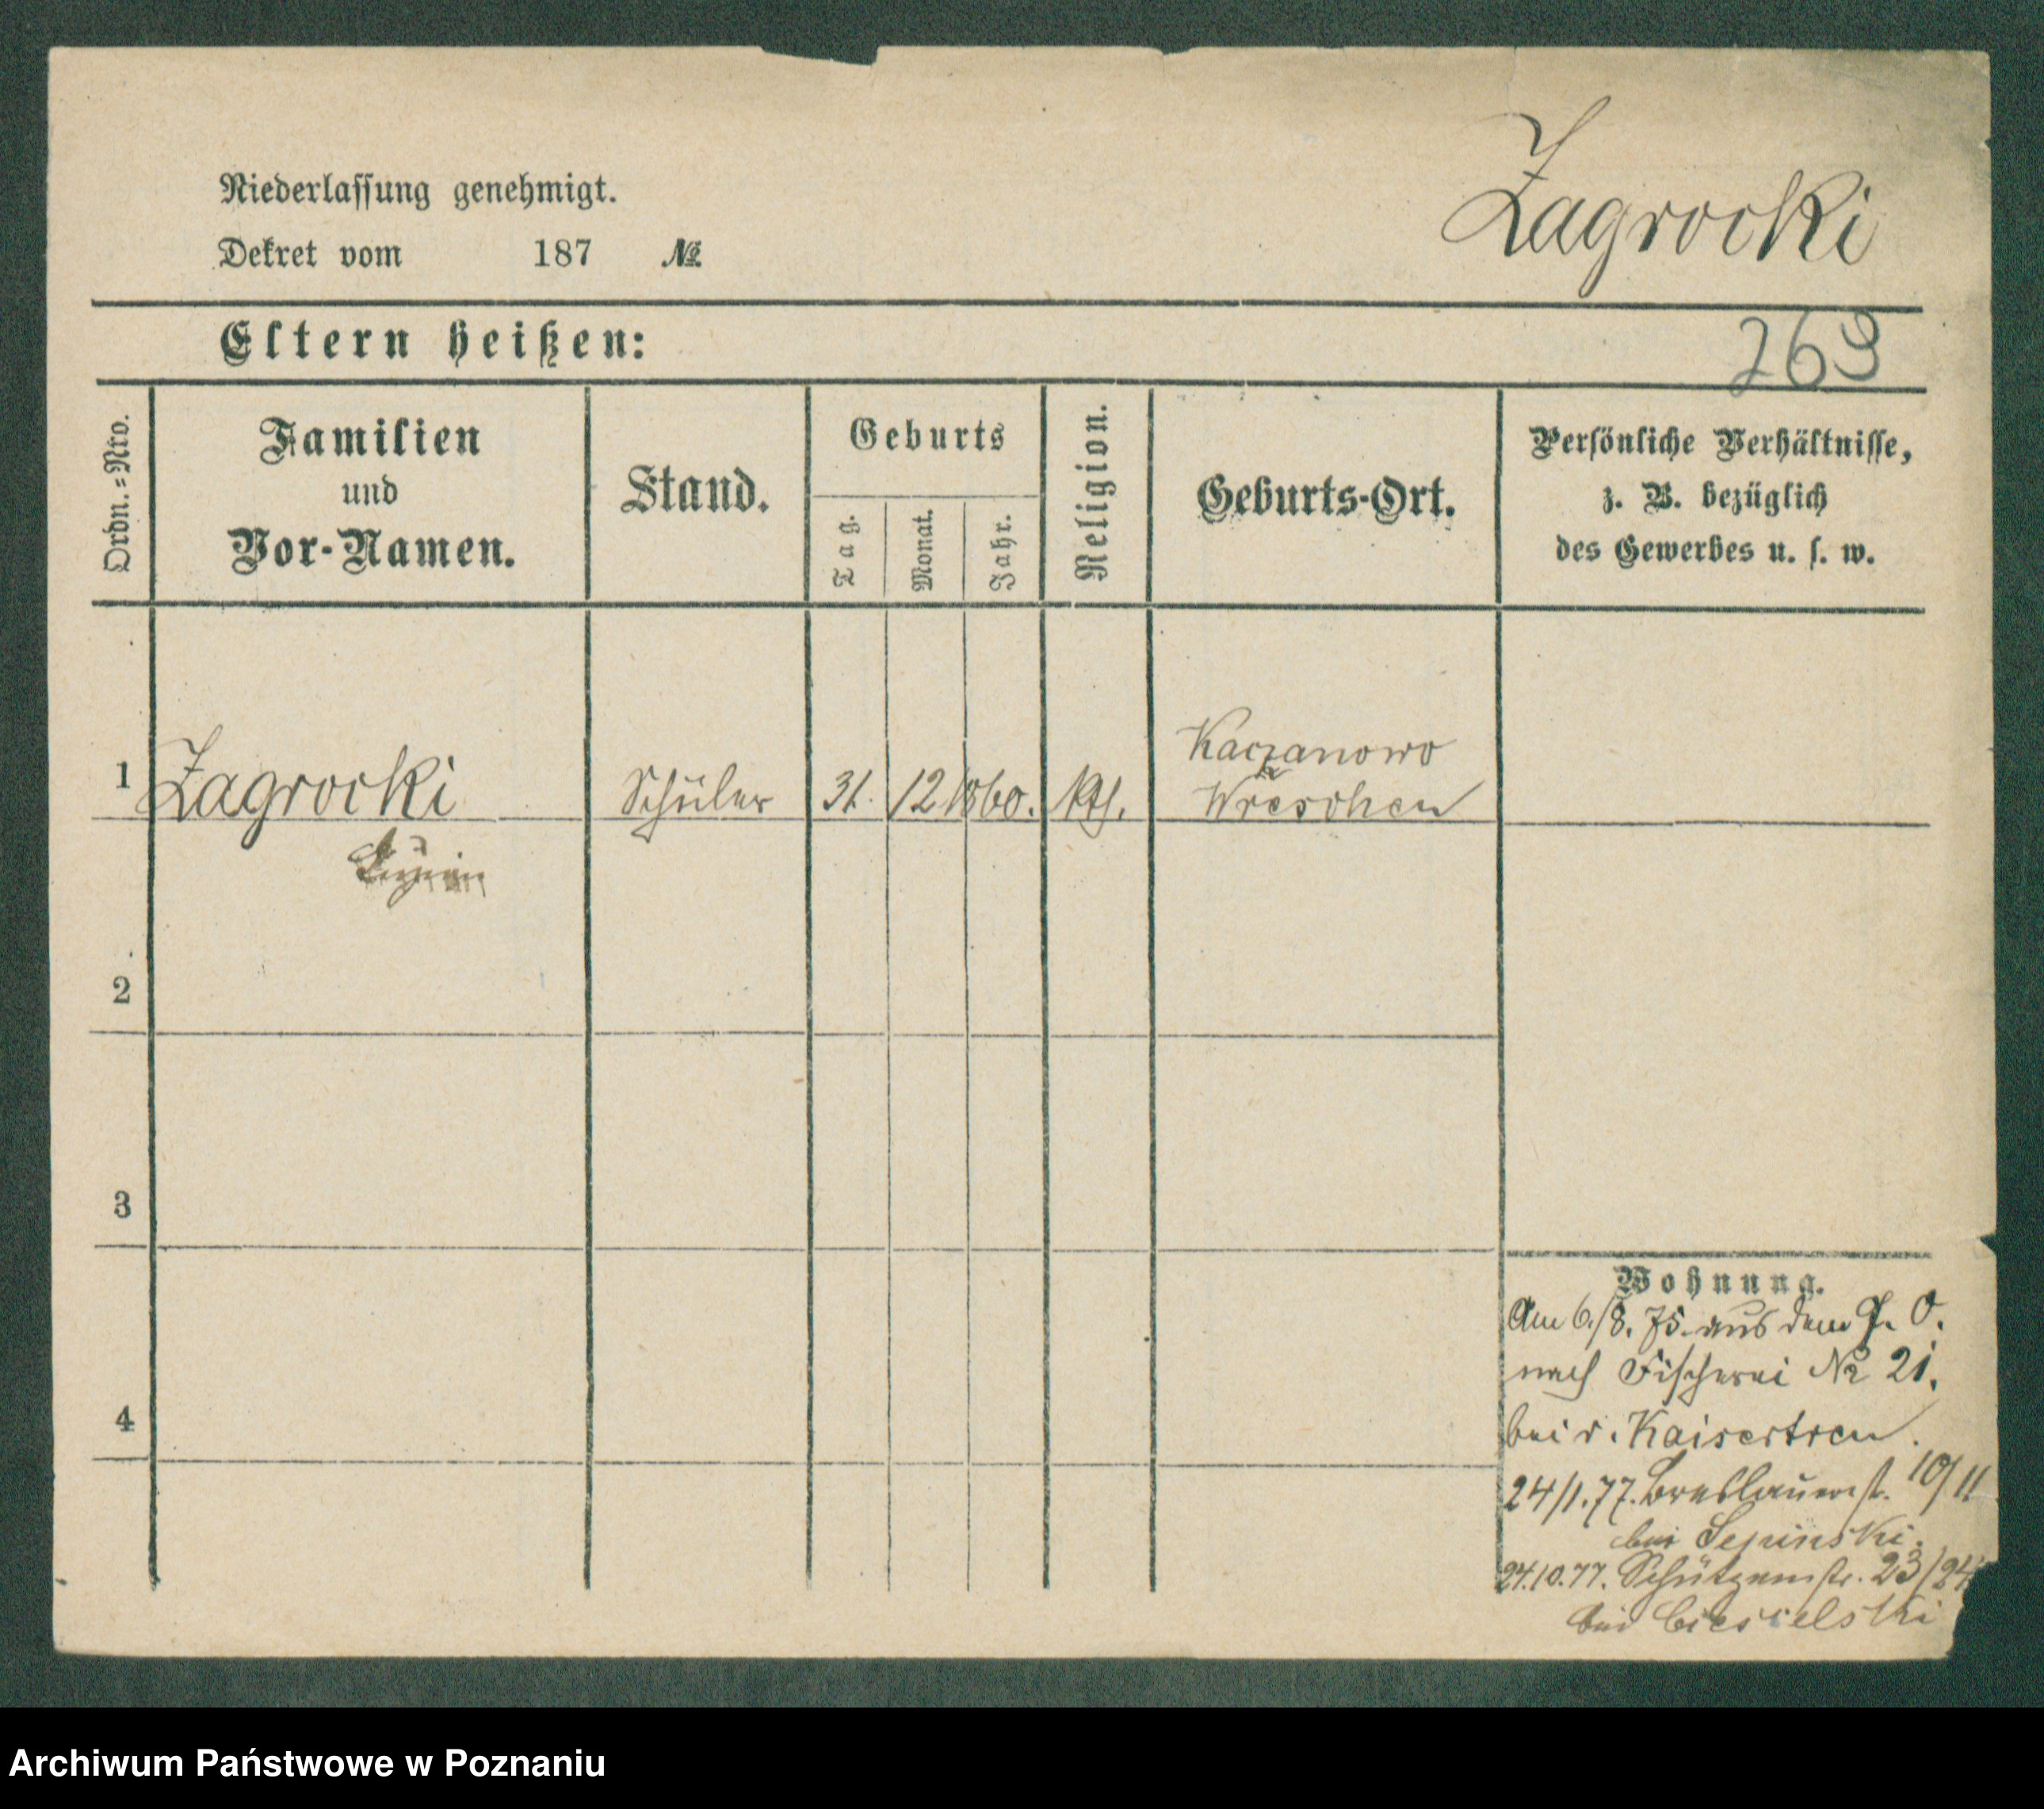 Niederlassung genehmigt.
Zagrocki
Dekret vom 187 №
Eltern heißen:
269
Ordn.-Nro.
Familien
und
Vor-Namen.
Stand.
Geburts
Tag.
Monat.
Jahr.
Religion.
Geburts-Ort.
Persönliche Verhältnisse,
z. B. bezüglich
des Gewerbes u. s. w.
Kaczanowo
1 Zagrocki Schüler 31. 12 1860. Kth. Wreschen
2
3
4
Wohnung.
Am 6./8. 75. aus dem J. O.
nach Fischerei № 21.
bei v. Kaisertreu.
24/1.77. Breslauerst. 10/11
bei
24.10.77. Schützenstr. 23/24
bei Ciesielski
Archiwum Państwowe w Poznaniu